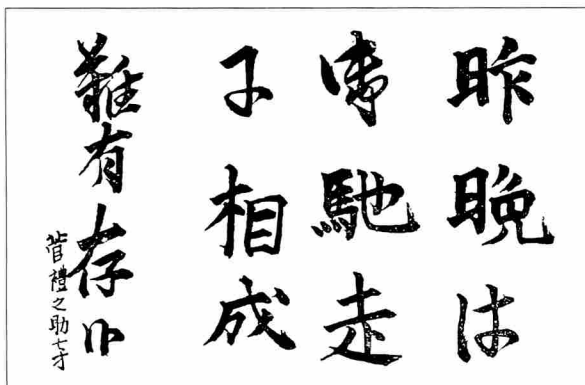 昨晩は
御馳走
に相成
難有存候
菅禮之助七才